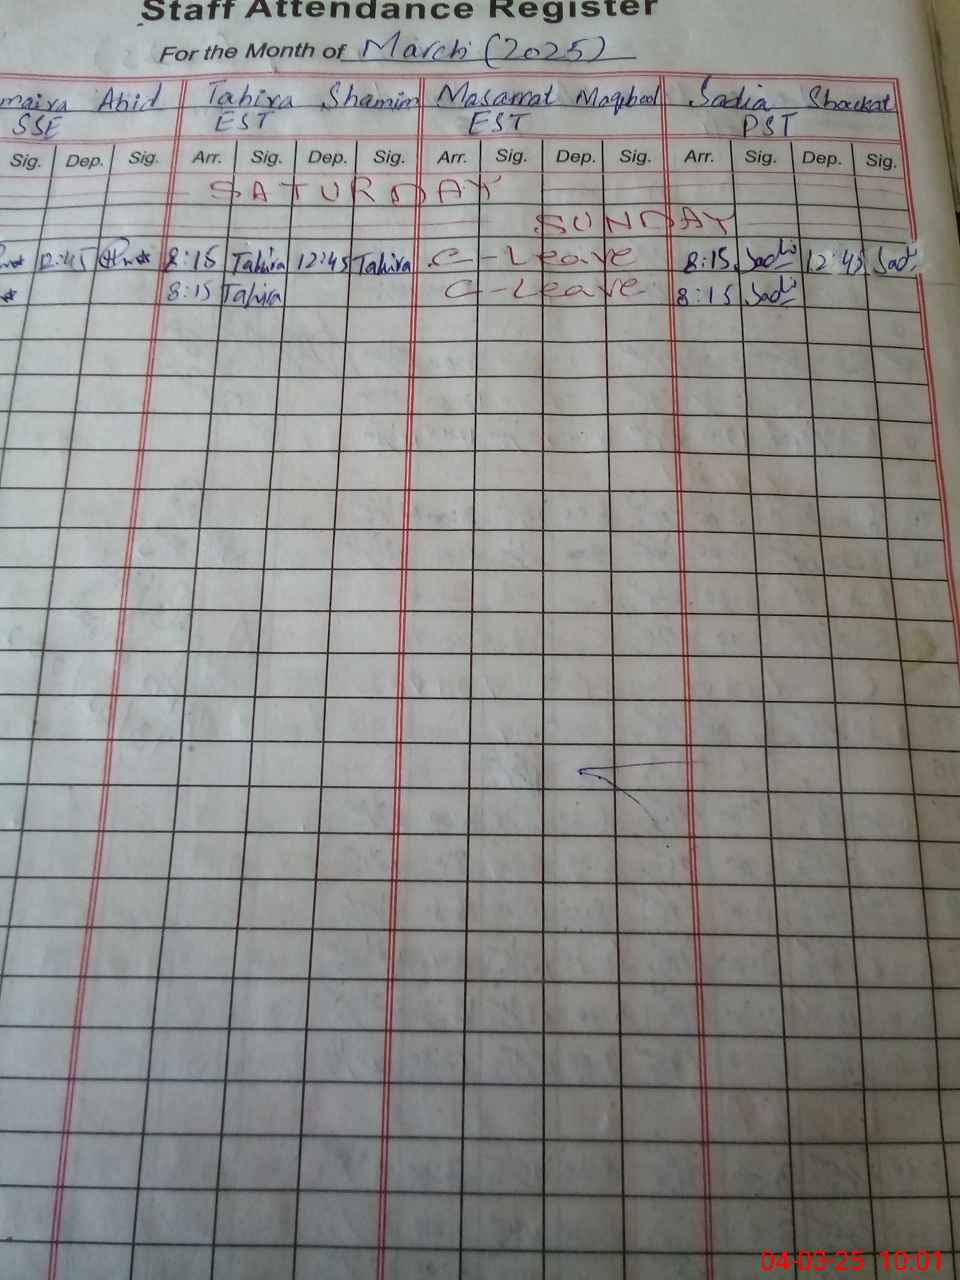 Staff Attendance Register
For the Month of March (2025)
maira Abid Tahira Shamim Masarrat Maqbool Sadia Shoukat
SSE EST EST PST
Sig. Dep. Sig. Arr. Sig. Dep. Sig. Arr. Sig. Dep. Sig. Arr. Sig. Dep. Sig.
SATURDAY
SUNDAY
12:45 8:15 Tahira 12:45 Tahira C-Leave 8:15 Sadi 12:45 Sadi
8:15 Tahira C-Leave 8:15 Sadi
04-03-25 10:01